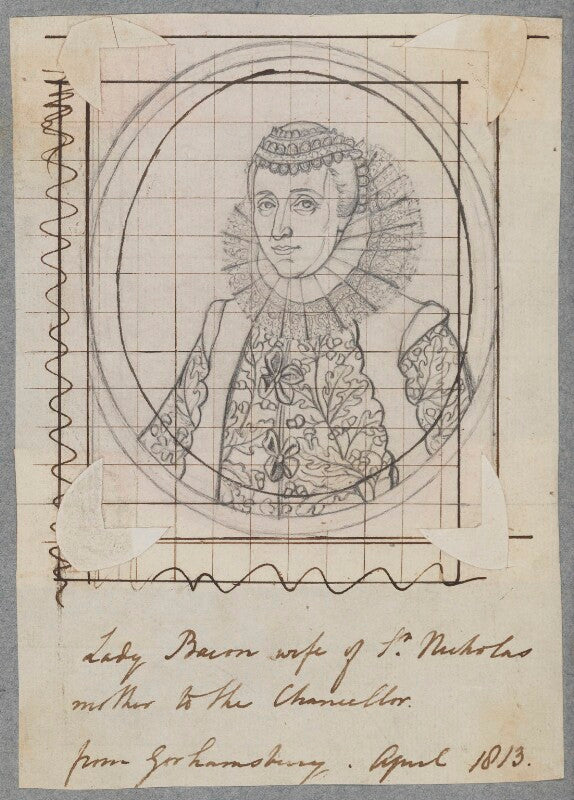 Lady Bacon wife of Sr. Nicholas
mother to the Chancellor.
from Gorhamsbury. April 1813.